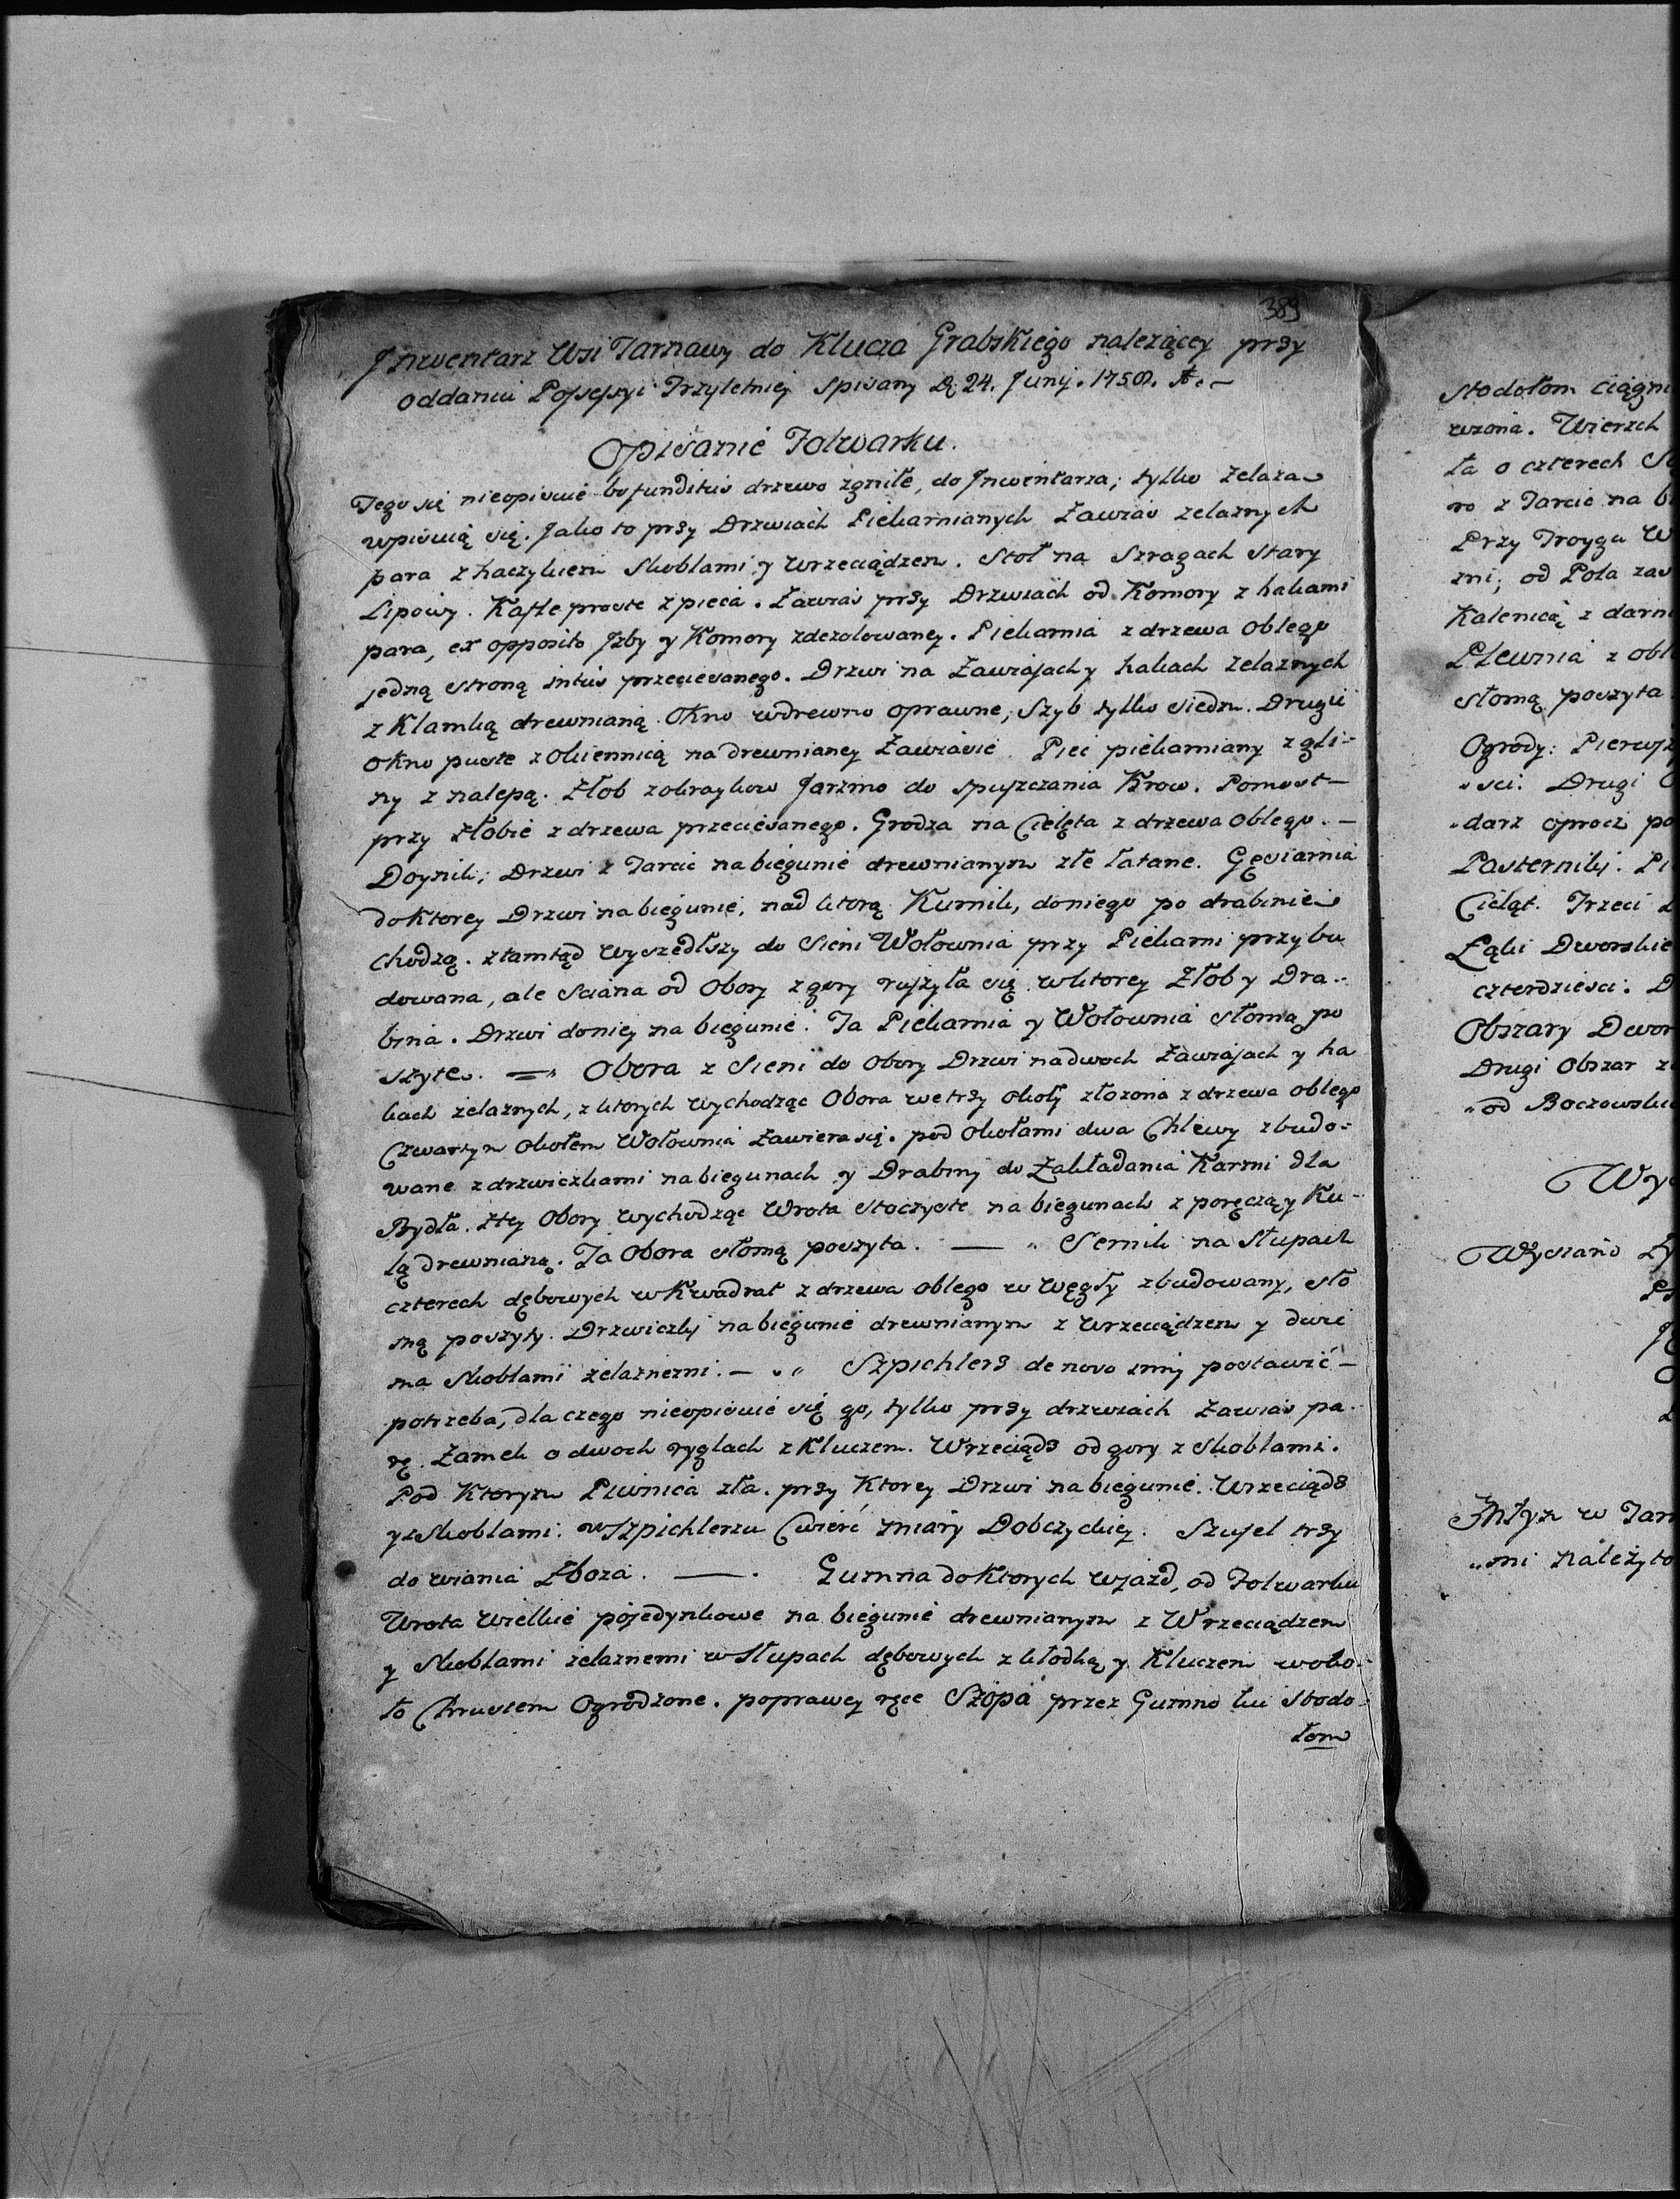 389
Inwentarz Wsi Tarnawy do Klucza Grabskiego należącey przy
oddaniu Possessyi Trzyletniej spisany D. 24. Junij. 1750.
Opisanie Folwarku.
Tego się nieopisuie bo funditus drzewo zgniłe, do Inwentarza; tylko żelaza
wpisuią się. Jako to przy Drzwiach Piekarnianych Zawias zelaznych
para z haczykiem Skoblami y wrzeciądzem. Stoł na Szragach stary
Lipowy. Kafle proste z pieca. Zawias przy Drzwiach od Komory z hakami
para, ex opposito Izby y Komory zdezolowaney. Piekarnia z drzewa oblego
jedną stroną intus przeciesanego. Drzwi na Zawiasach y hakach żelaznych
z Klamką drewnianą. Okno w drewno oprawne, Szyb tylko siedm. Drugie
okno puste z Okiennicą na drewnianey Zawiasie. Piec piekarniany z gli-
ny z nalepą. Złob z okraykow Jarzmo do spuszczania Krow. Pomost
przy złobie z drzewa przeciesanego. Grodza na Cielęta z drzewa oblego.
Doynik; Drzwi z Tarcic na biegunie drewnianym złe łatane. Gęsiarnia
do ktorey Drzwi na biegunie, nad ktorą Kurnik, do niego po drabinie
chodzą. z tamtąd wyszedłszy do Sieni Wołownia przy Piekarni przybu
dowana, ale Sciana od Obory z gory ruszyła się w ktorey Złob y Dra-
bina. Drzwi do niej na biegunie. Ta Piekarnia y Wołownia słomą po
szyte. Obora z Sieni do Obory Drzwi na dwoch Zawiasach y ha
kach żelaznych, z ktorych wychodząc Obora we trzy okoły złozona z drzewa oblego
Czwartym okołem Wołownia zawiera się. pod okołami dwa Chlewy zbudo-
wane z drzwiczkami na biegunach y Drabiny do Zakładania Karmi dla
Bydła. z tey Obory wychodząc Wrota stoczyste na biegunach z poręczą y Ku-
lą drewnianą. Ta Obora słomą poszyta. Sernik na Słupach
czterech dębowych w Kwadrat z drzewa oblego w węgły zbudowany, sło
mą poszyty. Drzwiczki na biegunie drewnianym z wrzeciądzem y dwie
ma skoblami żelaznemi. Szpichlerz de novo inny postawić
potrzeba, dla czego nieopisuie się go, tylko przy drzwiach Zawias pa-
rę. Zamek o dwoch ryglach z Kluczem. Wrzeciądz od gory z Skoblami.
Pod Ktorym Piwnica zła. przy Ktorey Drzwi na biegunie. Wrzeciądz
y z Skoblami. w Szpichlerzu Cwierć miary Dobczyckiej. Szufel trzy
do wiania Zboża. Gumna do Ktorych wjazd, od Folwarku
Wrota wielkie pojedynkowe na biegunie drewnianym z Wrzeciądzem
y Skoblami żelaznemi w Słupach dębowych z kłodką y Kluczem woko-
ło Chrustem Ogrodzone. po prawey ręce Szopa przez Gumno ku Stodo-
łom
Stodołom ciągni
wzona. Wierzch
ła o czterech
z Tarcic na b
Przy Troygu W
zni; od Pola
Kalenicą z darn
Plewnia z obl
słomą poszyta
Ogrody: Pierwsz
sci. Drugi
darz oprocz po
Pasterniki. Pi
Cieląt. Trzeci
Łąki Dworskie
czterdziesci. D
Obszary Dwor
Drugi Obszar
od Boczowski
Wys
Wysiano
Młyn w Tarn
mi należyto